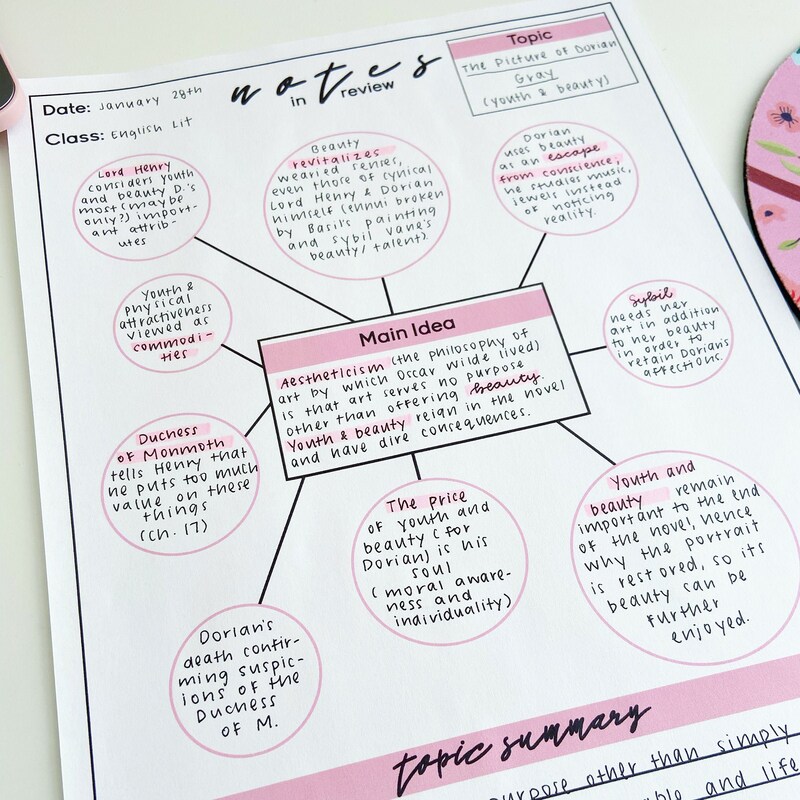 Date: January 28th
Class: English Lit
notes
in review
Topic
The Picture of Dorian
Gray
(youth & beauty)
Lord Henry
considers youth
and beauty D.'s
most (maybe
only?) import-
ant attrib-
utes
Beauty
revitalizes
wearied senses,
even those of cynical
Lord Henry & Dorian
himself (ennui broken
by Basil's painting
and Sybil Vane's
beauty/talent).
Dorian
uses beauty
as an escape
from conscience,
he studies music,
jewels instead
of noticing
reality.
Youth &
physical
attractiveness
viewed as
commodi-
ties
Main Idea
Aestheticism (the philosophy of
art by which Oscar Wilde lived)
is that art serves no purpose
other than offering beauty.
Youth & beauty reign in the novel
and have dire consequences.
Sybil
needs her
art in addition
to her beauty
in order to
retain Dorian's
affections.
Duchess
of Monmoth
tells Henry that
he puts too much
value on these
things
(ch. 17)
The Price
of youth and
beauty (for
Dorian) is his
soul
(moral aware-
ness and
individuality)
Youth and
beauty remain
important to the end
of the novel, hence
why the portrait
is restored, so its
beauty can be
further
enjoyed.
Dorian's
death confir-
ming suspic-
ions of the
Duchess
of M.
topic summary
purpose other than simply
and life